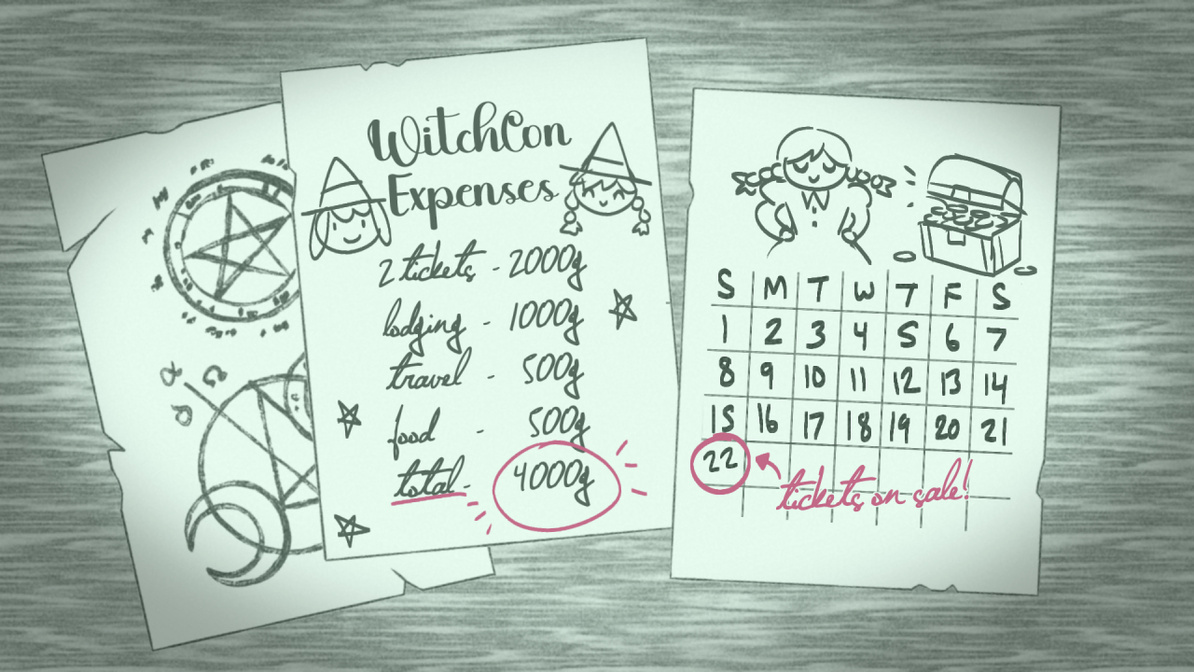 WitchCon
Expenses
2 tickets - 2000g
lodging - 1000g
travel - 500g
food - 500g
total - 4000g
S M T W T F S
1 2 3 4 5 6 7
8 9 10 11 12 13 14
15 16 17 18 19 20 21
22
tickets on sale!